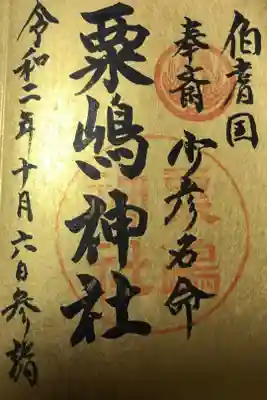 伯耆国
奉斎 少彦名命
粟嶋神社
令和二年十月六日参詣